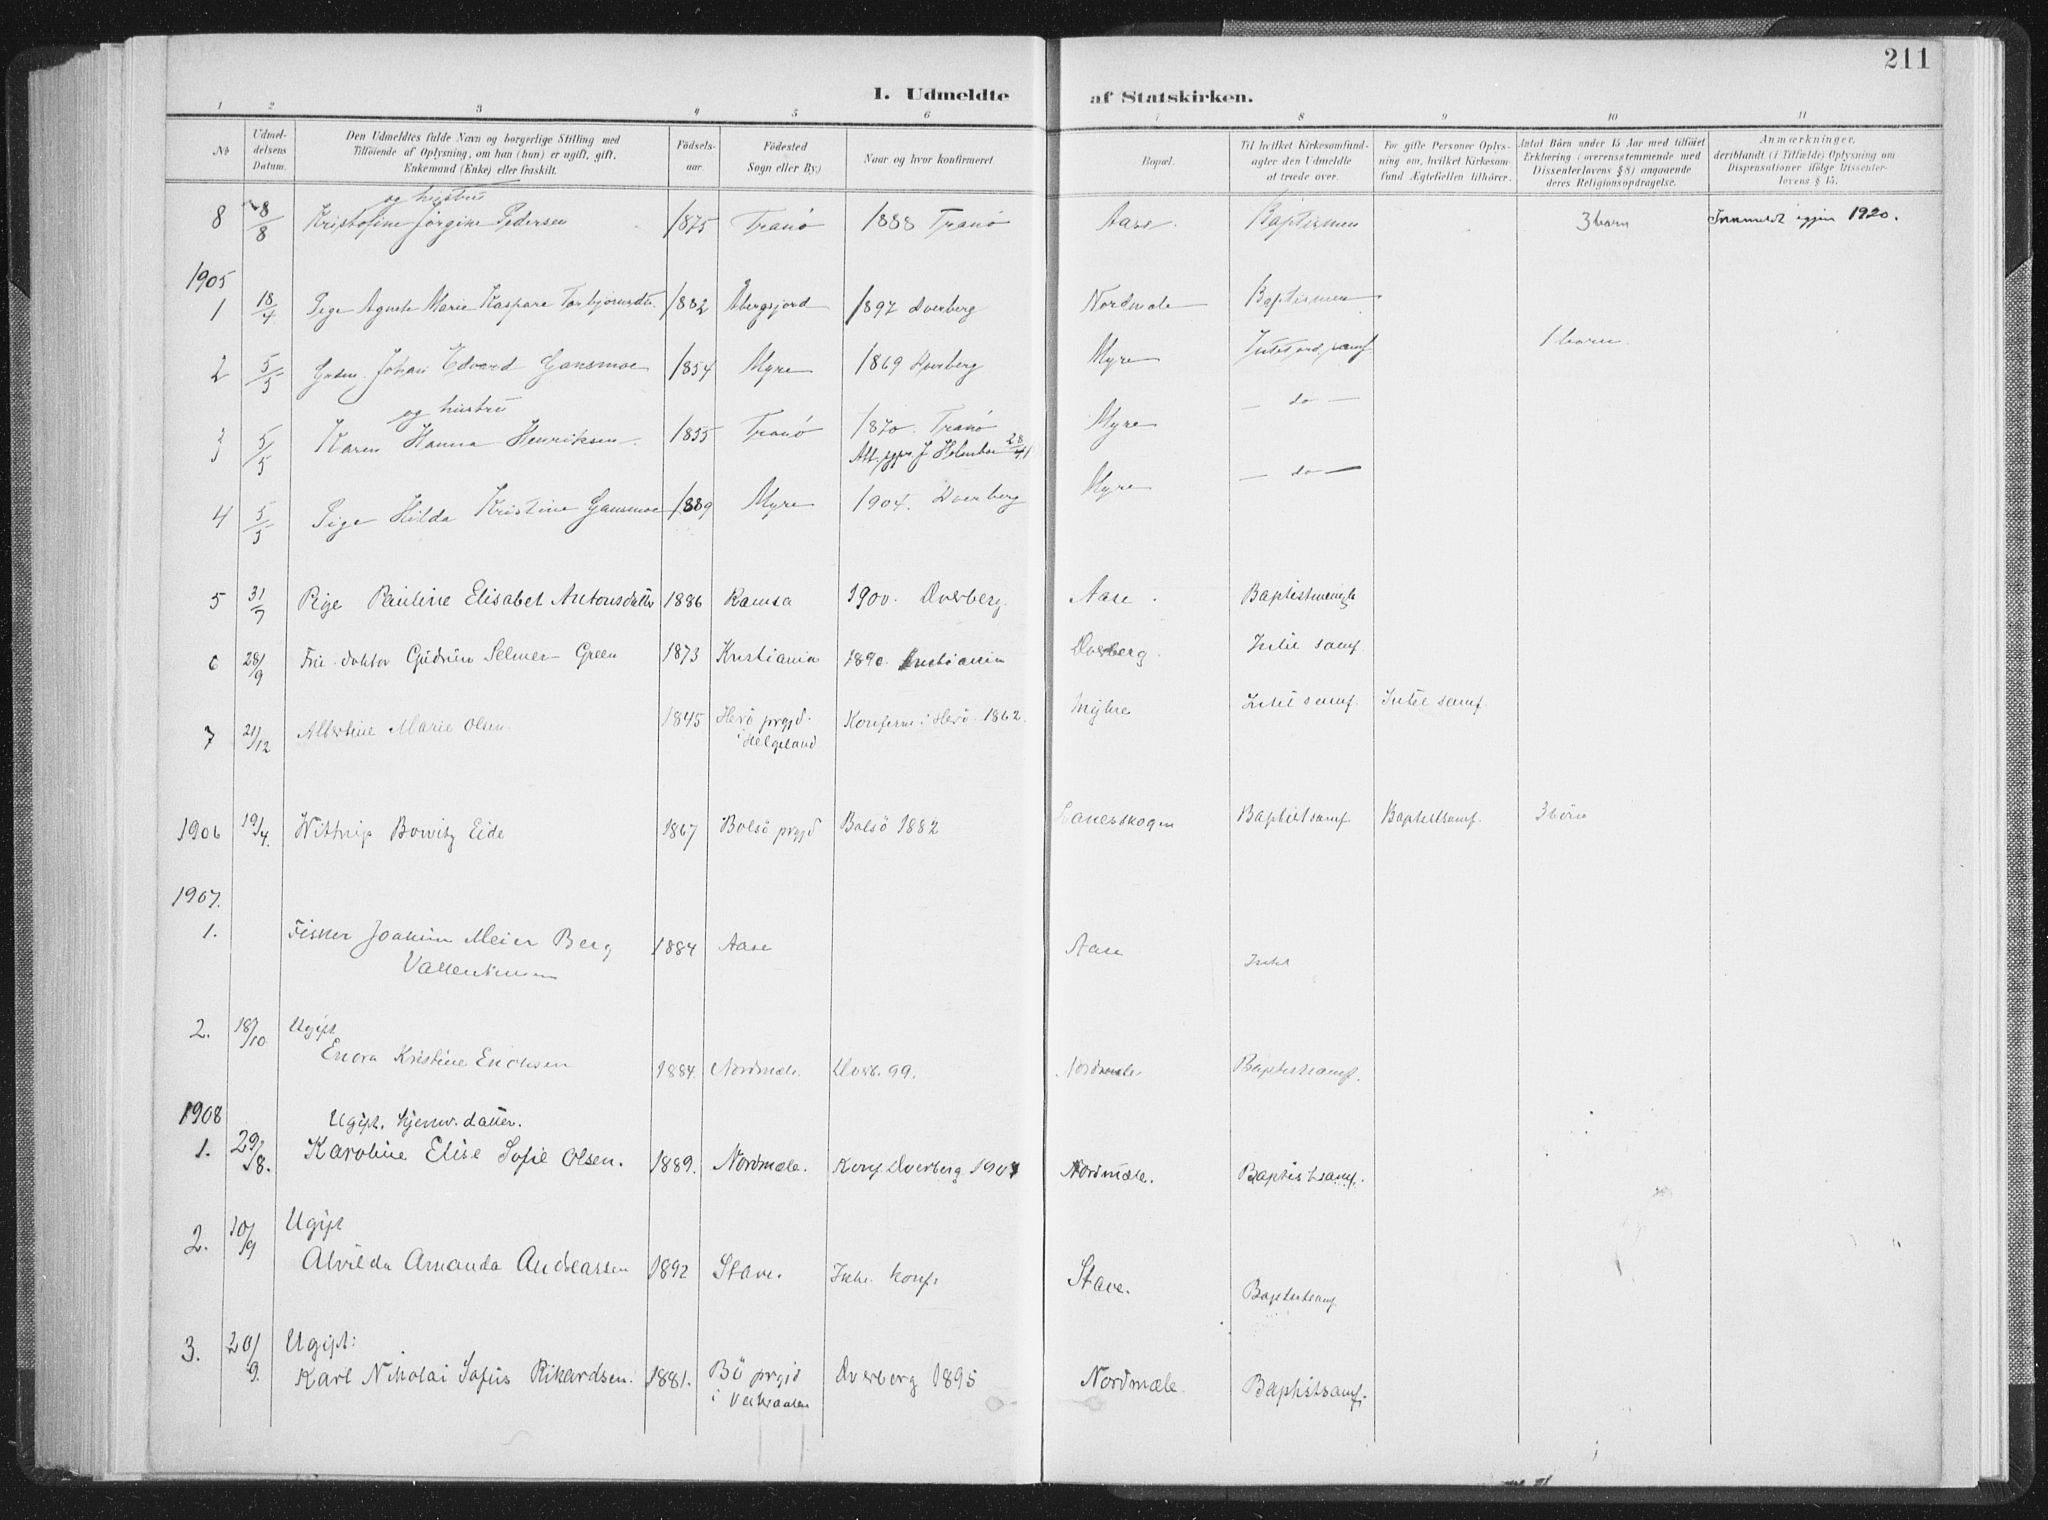 211
I. Udmeldte af Statskirken.
1 2 3 4 5 6 7 8 9 10 11
No
Udmel-
delsens
Datum.
Den Udmeldtes fulde Navn og borgerlige Stilling med
Tilföiende af Oplysning, om han (hun) er ugift, gift,
Enkemand (Enke) eller fraskilt.
Födsels-
aar.
Födested
Sogn eller By)
Naar og hvor konfirmeret
Bopæl.
Til hvilket Kirkesamfund-
agter den Udmeldte
at træde over.
For gifte Personer Oplys-
ning om, hvilket Kirkesam-
fund Ægtefællen tilhörer.
Antal Börn under 15 Aar med tilföiet
Erklæring (overensstemmende med
Dissenterlovens § 8) angaaende
deres Religionsopdragelse.
Anmærkninger,
deriblandt (i Tilfælde) Oplysning om
Dispensationer ifölge Dissenter-
lovens § 15.
og hustru
8 8/8 Kristofine Jørgine Pedersen 1875 Tranö 1888 Tranö Aase. Baptismen 3 barn Innmeldt igjen 1920.
1905
1 18/4 Pige Agnete Marie Kaspara Torbjörnsdtr. 1882 Åbergsjord 1897 Dverberg Nordmæle Baptismen
2 5/5 Gaardm. Johan Edvard Gansmoe 1854 Myre 1869 Dverberg Myre 1 barn.
og hustru
3 5/5 Karen Hanna Henriksen. 1855 Tranö 1870. Tranö Myre — do —
28/4
4 5/5 Pige Hilda Kristine Gansmoe 1889 Myre 1904. Dverberg Myre — do —
5 31/7 Pige Pauline Elisabet Antonsdatter 1886 Ramsa 1900. Dverberg. Aase. Baptistmenigh
6 28/9 Frue doktor Gudrun Selmer Green 1873 Kristiania 1890. Kristiania Dverberg. Intet samf.
7 21/12 Albertine Marie Olsen. 1845 Herö prgjd. Konferm i Herö 1862. Myhre Intet samf. Intet samf.
i Helgeland
1906 19/4. Wittrup Bowitz Eide 1867 Bolsö prgjd Bolsö 1882 Baptistsamf. Baptistsamf. 3 börn
1907.
1. Fisker Joakim Meier Berg 1884 Aase Aase Intet
Vallentinsen
2. 18/10 Ugift
Enora Kristine Enoksen 1884. Nordmæle. Dverb. 99. Nordmæle. Baptistsamf.
1908 Ugift. hjemv. datter.
1. 29/8. Karoline Elise Sofie Olsen. 1889. Nordmæle. Konf Dverberg 1904 Nordmæle. Baptistsamf.
2. 10/9 Ugift
Alvilda Amanda Andreassen 1892 Stave. Ikke konf. Stave. Baptistsamf
3. 20/9. Ugift:
Karl Nikolai Sofus Rikardsen. 1881. Bö prgjd Dverberg 1895 Nordmæle. Baptistsamf.
i Vesteraalen